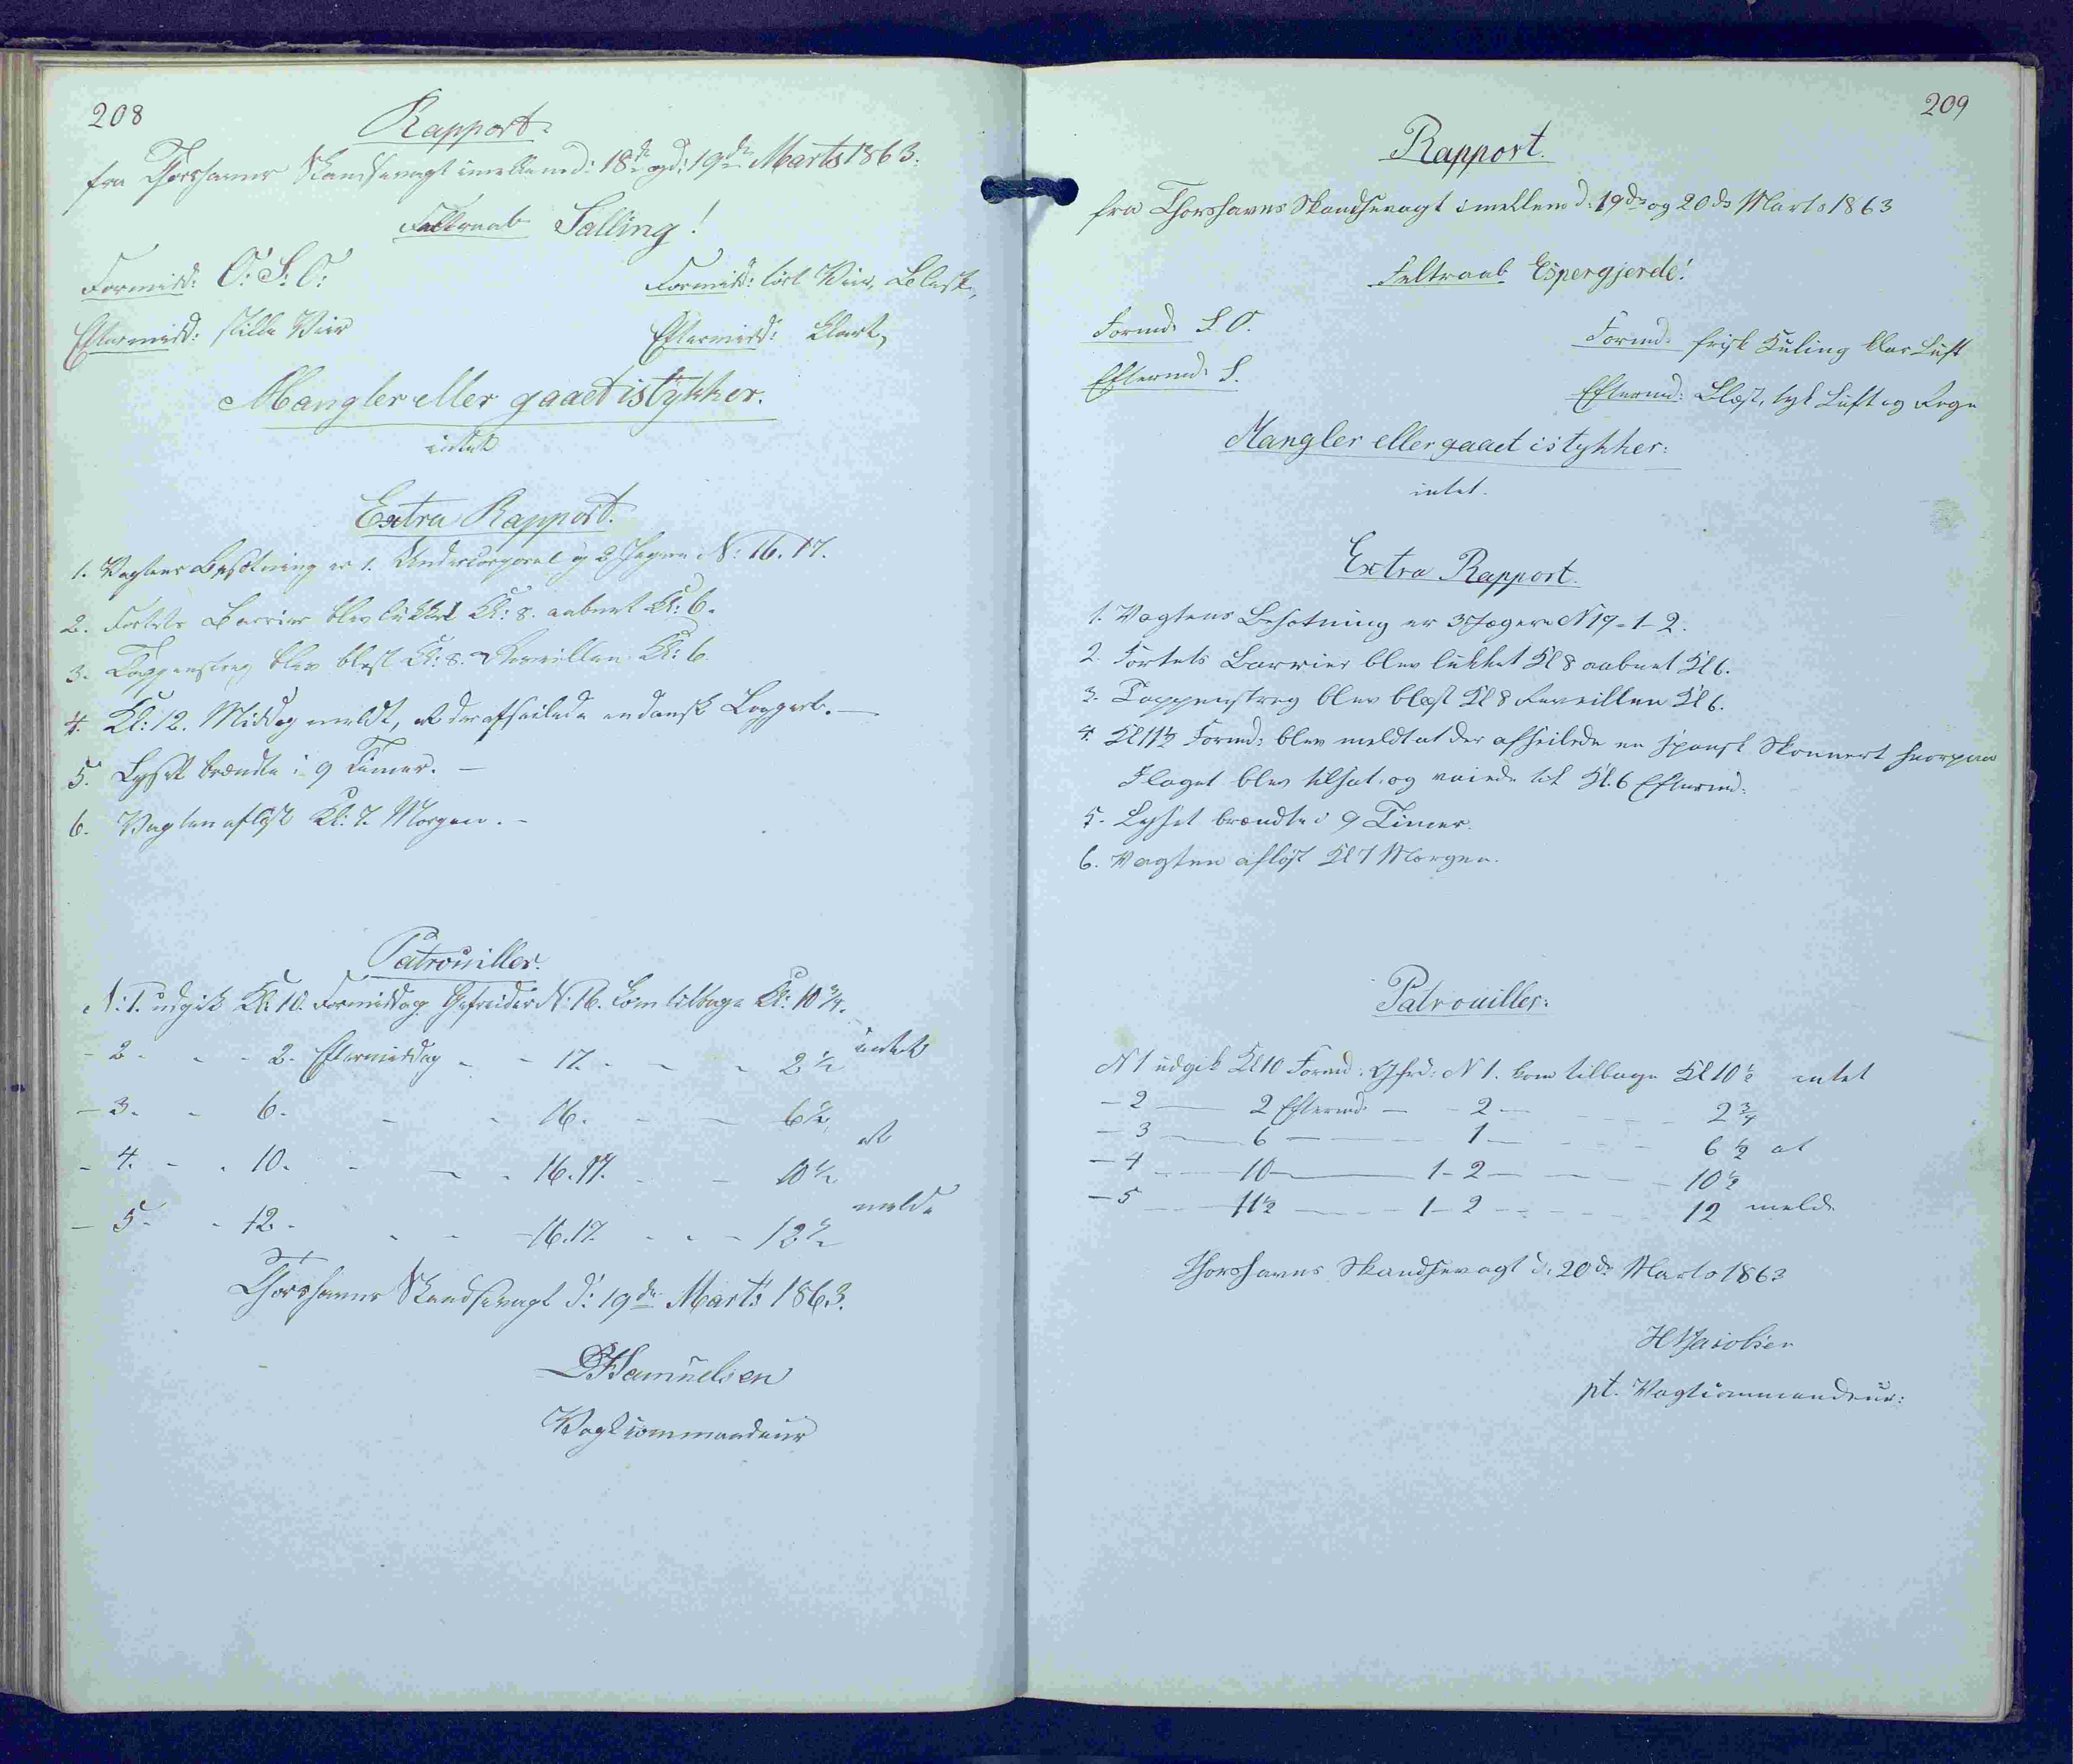 208
Rapport
fra Thorshavns Skandsevagt imellem d: 18de og d: 19de Marts 1863.
Feltraab Salling!
Formidd: O: S: O:
Formidd: Blæst,
Eftermidd: stille Veir
Eftermidd: klart,
Mangler eller gaaet istykker.
intet
Extra Rapport.
1. Vagtens Besætning er 1. Undercorporal og 2 Jægere N: 16. 17.
2. Fortets Barrier blev lukket Kl: 8. aabnet Kl: 6.
3. Tappenstreg blev blæst Kl: 8. Reveillen Kl: 6.
4. Kl: 12. Middag meldt, at der afseilede en dansk Loggert. —
5. Lyset brændte i 9 Timer. —
6. Vagten afløst Kl: 7. Morgen. -
Patrouiller.
N: 1. udgik Kl: 10. Formiddag Gefreider N: 16. kom tilbage Kl: 10 3/4. intet
- 2 - - - 2. Eftermiddag - - 17. - - - 2 1/2
- 3. - 6. - - 16. - - 6 1/2 at
- 4. - - 10. - - - 16. 17. - - 10 1/2
- 5. - 12. - - - 16. 17. - - - 12 1/2 melde
Thorshavns Skandsevagt d: 19de Marts 1863.
Samuelsen
Vagtcommandeur
209
Rapport.
fra Thorshavns Skandsevagt imellem d: 19de og 20de Marts 1863
Feltraab Espergjerde!
Formd: S. O.
Formd: frisk Kuling klar Luft
Eftermd: S.
Eftermd: Blæst, tyk Luft og Regn
Mangler eller gaaet istykker:
intet.
Extra Rapport.
1. Vagtens Besætning er 3 Jægere N 19 - 1 - 2.
2. Fortets Barrier blev lukket Kl 8 aabnet Kl 6.
3. Tappenstreg blev blæst Kl 8 Reveillen Kl 6.
4. Kl 11 1/2 Formd: blev meldt at der afseilede en spansk Skonnert hvorpaa
Flaget blev tilsat og vaiede til Kl. 6 Eftermd:
5. Lyset brændte i 9 Timer.
6. Vagten afløst Kl 7 Morgen.
Patrouiller:
N 1 udgik Kl 10 Formd: Gfrd: N 1. kom tilbage Kl 10 1/2 intet
- 2 — 2 Eftermd: — - 2 — - - - 2 3/4
- 3 — 6 — 1 — - - - 6 1/2 at
- 4 — 10 — 1 - 2 — - - - 10 1/2
- 5 — 11 1/2 — 1 - 2 - - - - 12 melde
Thorshavns Skandsevagt d: 20de Marts 1863
H Jacobsen
pt. Vagtcommandeur: